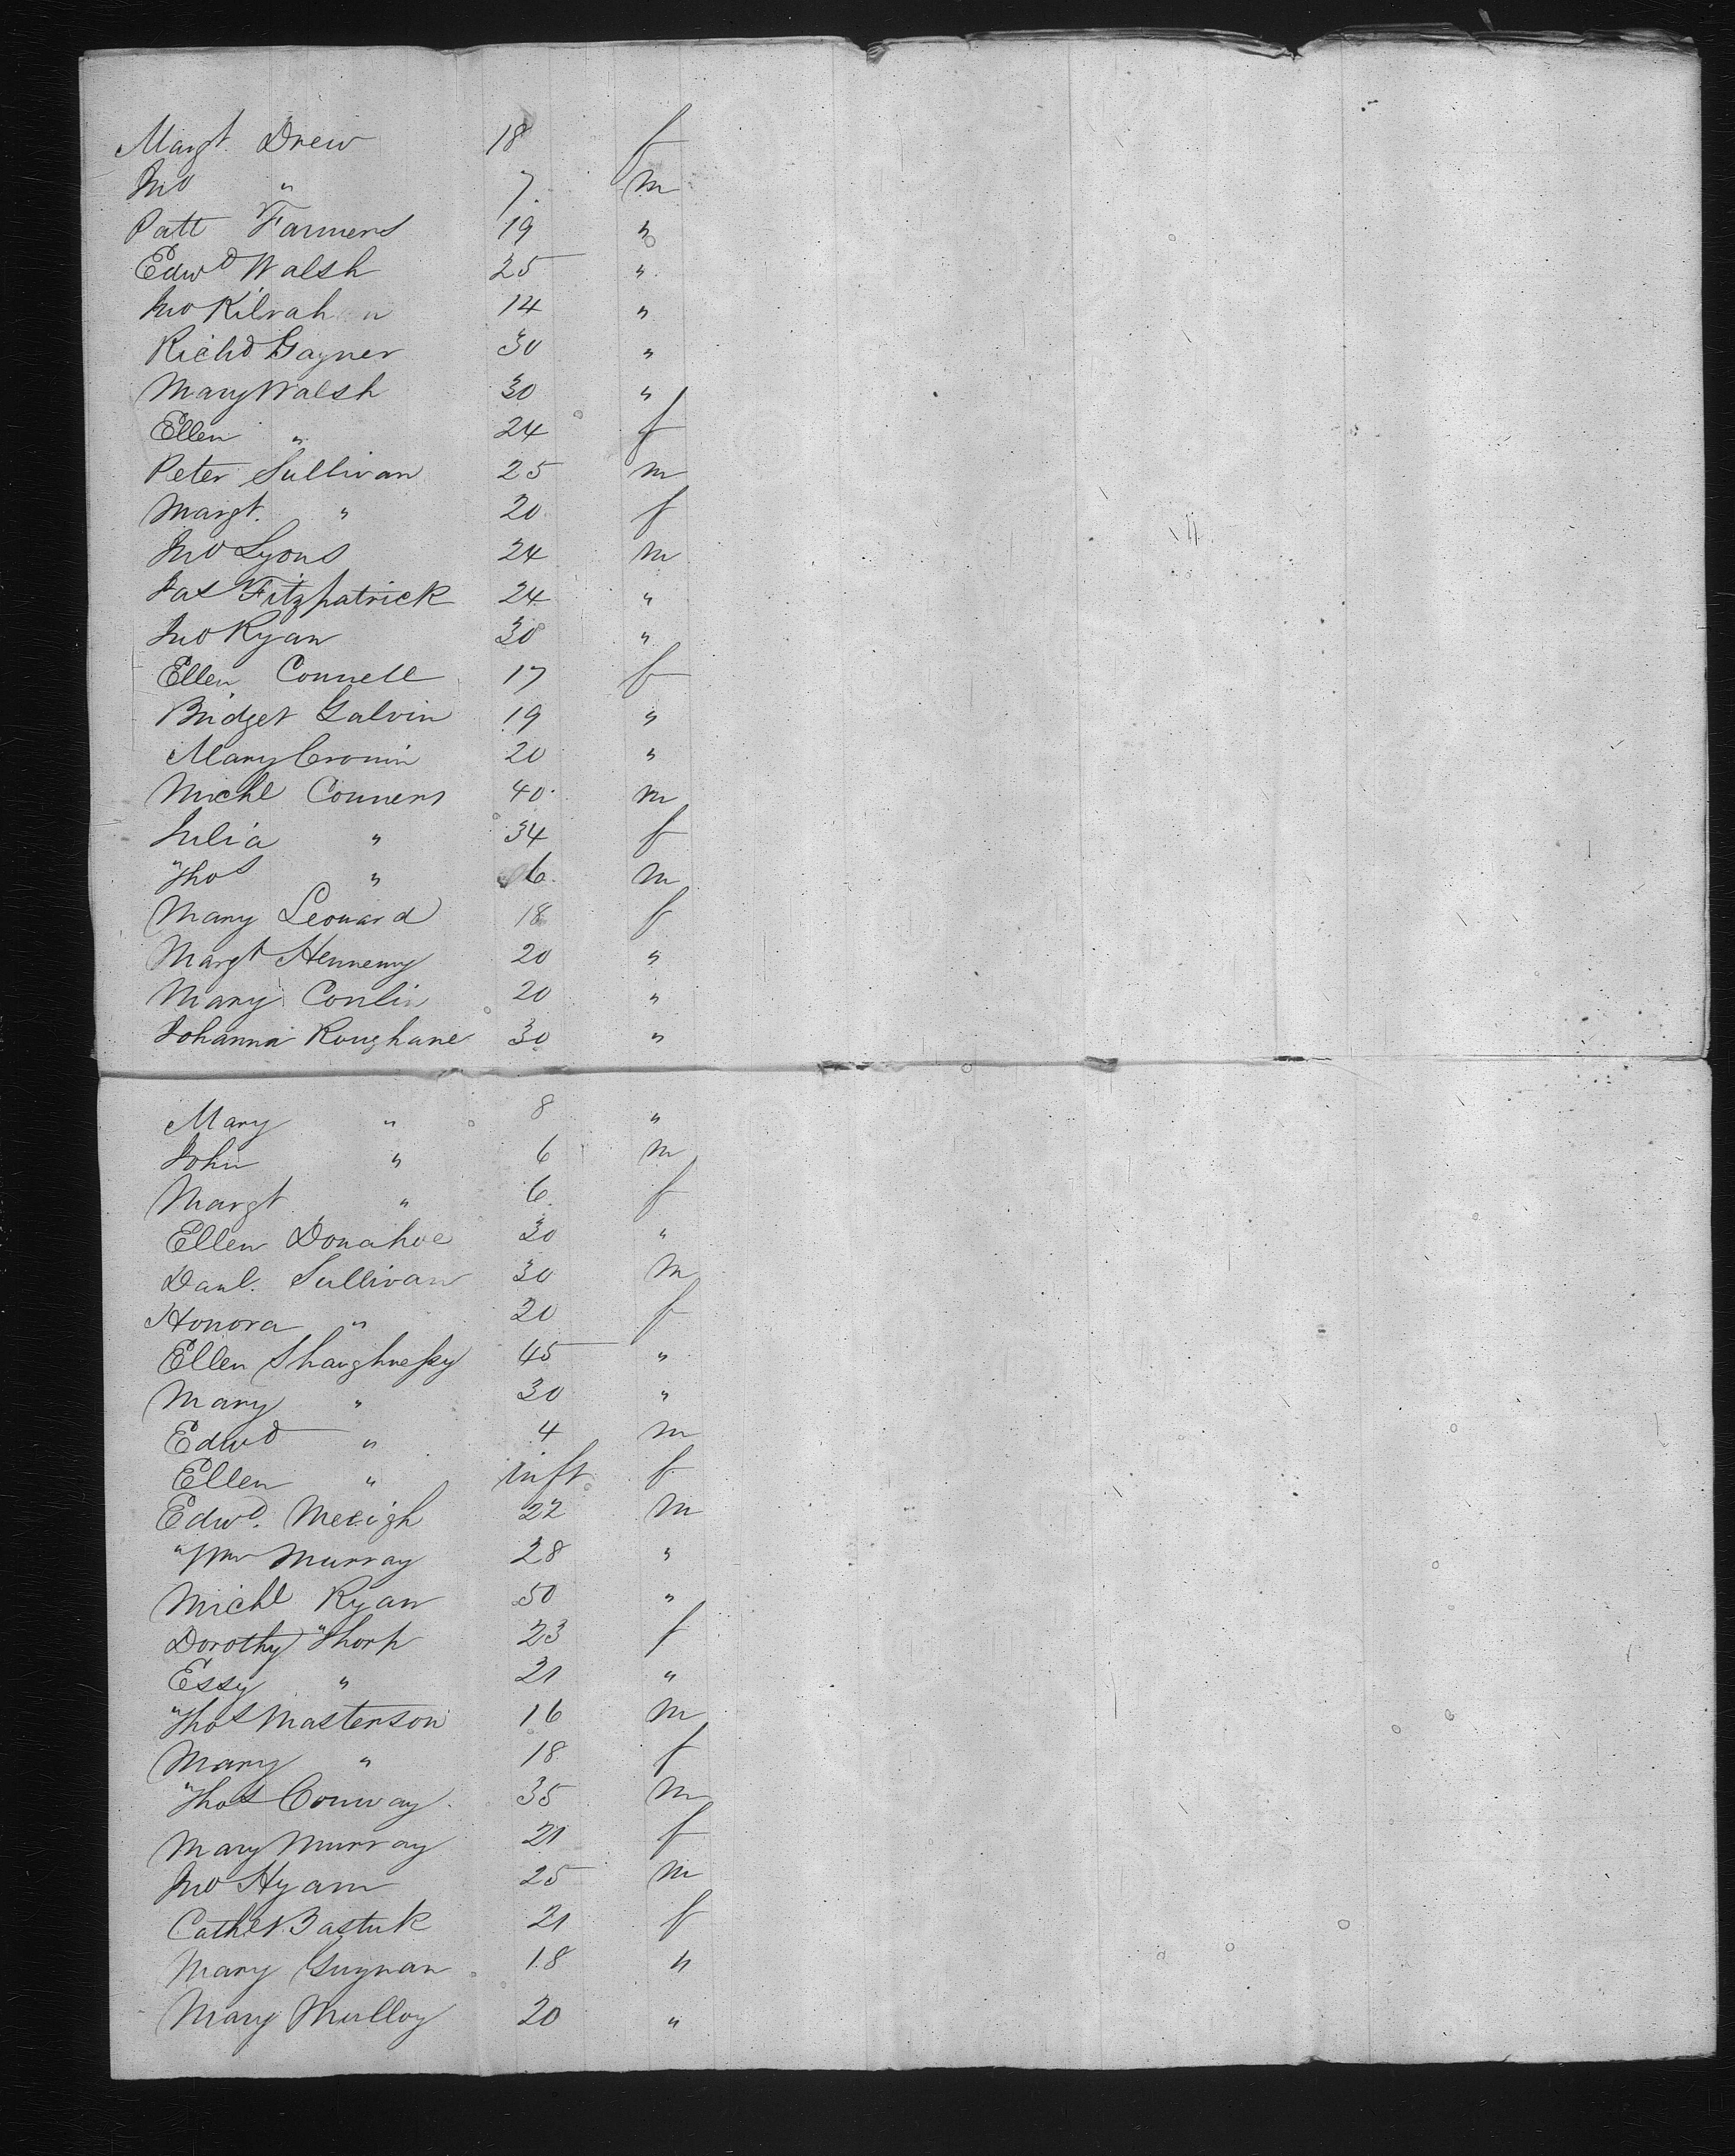 Margt. Drew 18 f
Jno " 7. m
Patt Farmers 19 "
Edwd Walsh 25 "
Jno Kilrah n 14 "
Richd Gayner 30 "
Mary Walsh 30 "
Ellen " 24 f
Peter Sullivan 25 m
Margt. " 20 f
Jno Lyons 24 m
Jas Fitzpatrick 24 "
Jno Ryan 30 "
Ellen Connell 17 f
Bridget Galvin 19 "
Mary Cronin 20 "
Michl Conners 40 m
Julia " 34 f
Thos " 6. m
Mary Leonard 18 f
Margt Hennemy 20 "
Mary Conlin 20 "
Johanna Roughane 30 "
Mary " 8 "
John " 6 m
Margt " 6. f
Ellen Donahoe 30 "
Danl. Sullivan 30 m
Honora " 20 f
Ellen Shaughnessy 45 "
Mary " 30 "
Edwd " 4 m
Ellen " inft. f
Edwd. Meeigh 22 m
Wm Murray 28 "
Michl Ryan 50 "
Dorothy Thorp 23 f
Essy " 21 "
Thos Masterson 16 m
Mary " 18 f
Thos Conway 35 m
Mary Murray 21 f
Jno Hyam 25 m
Cathe Bastuk 21 f
Mary Guynan 18 "
Mary Mulloy 20 "